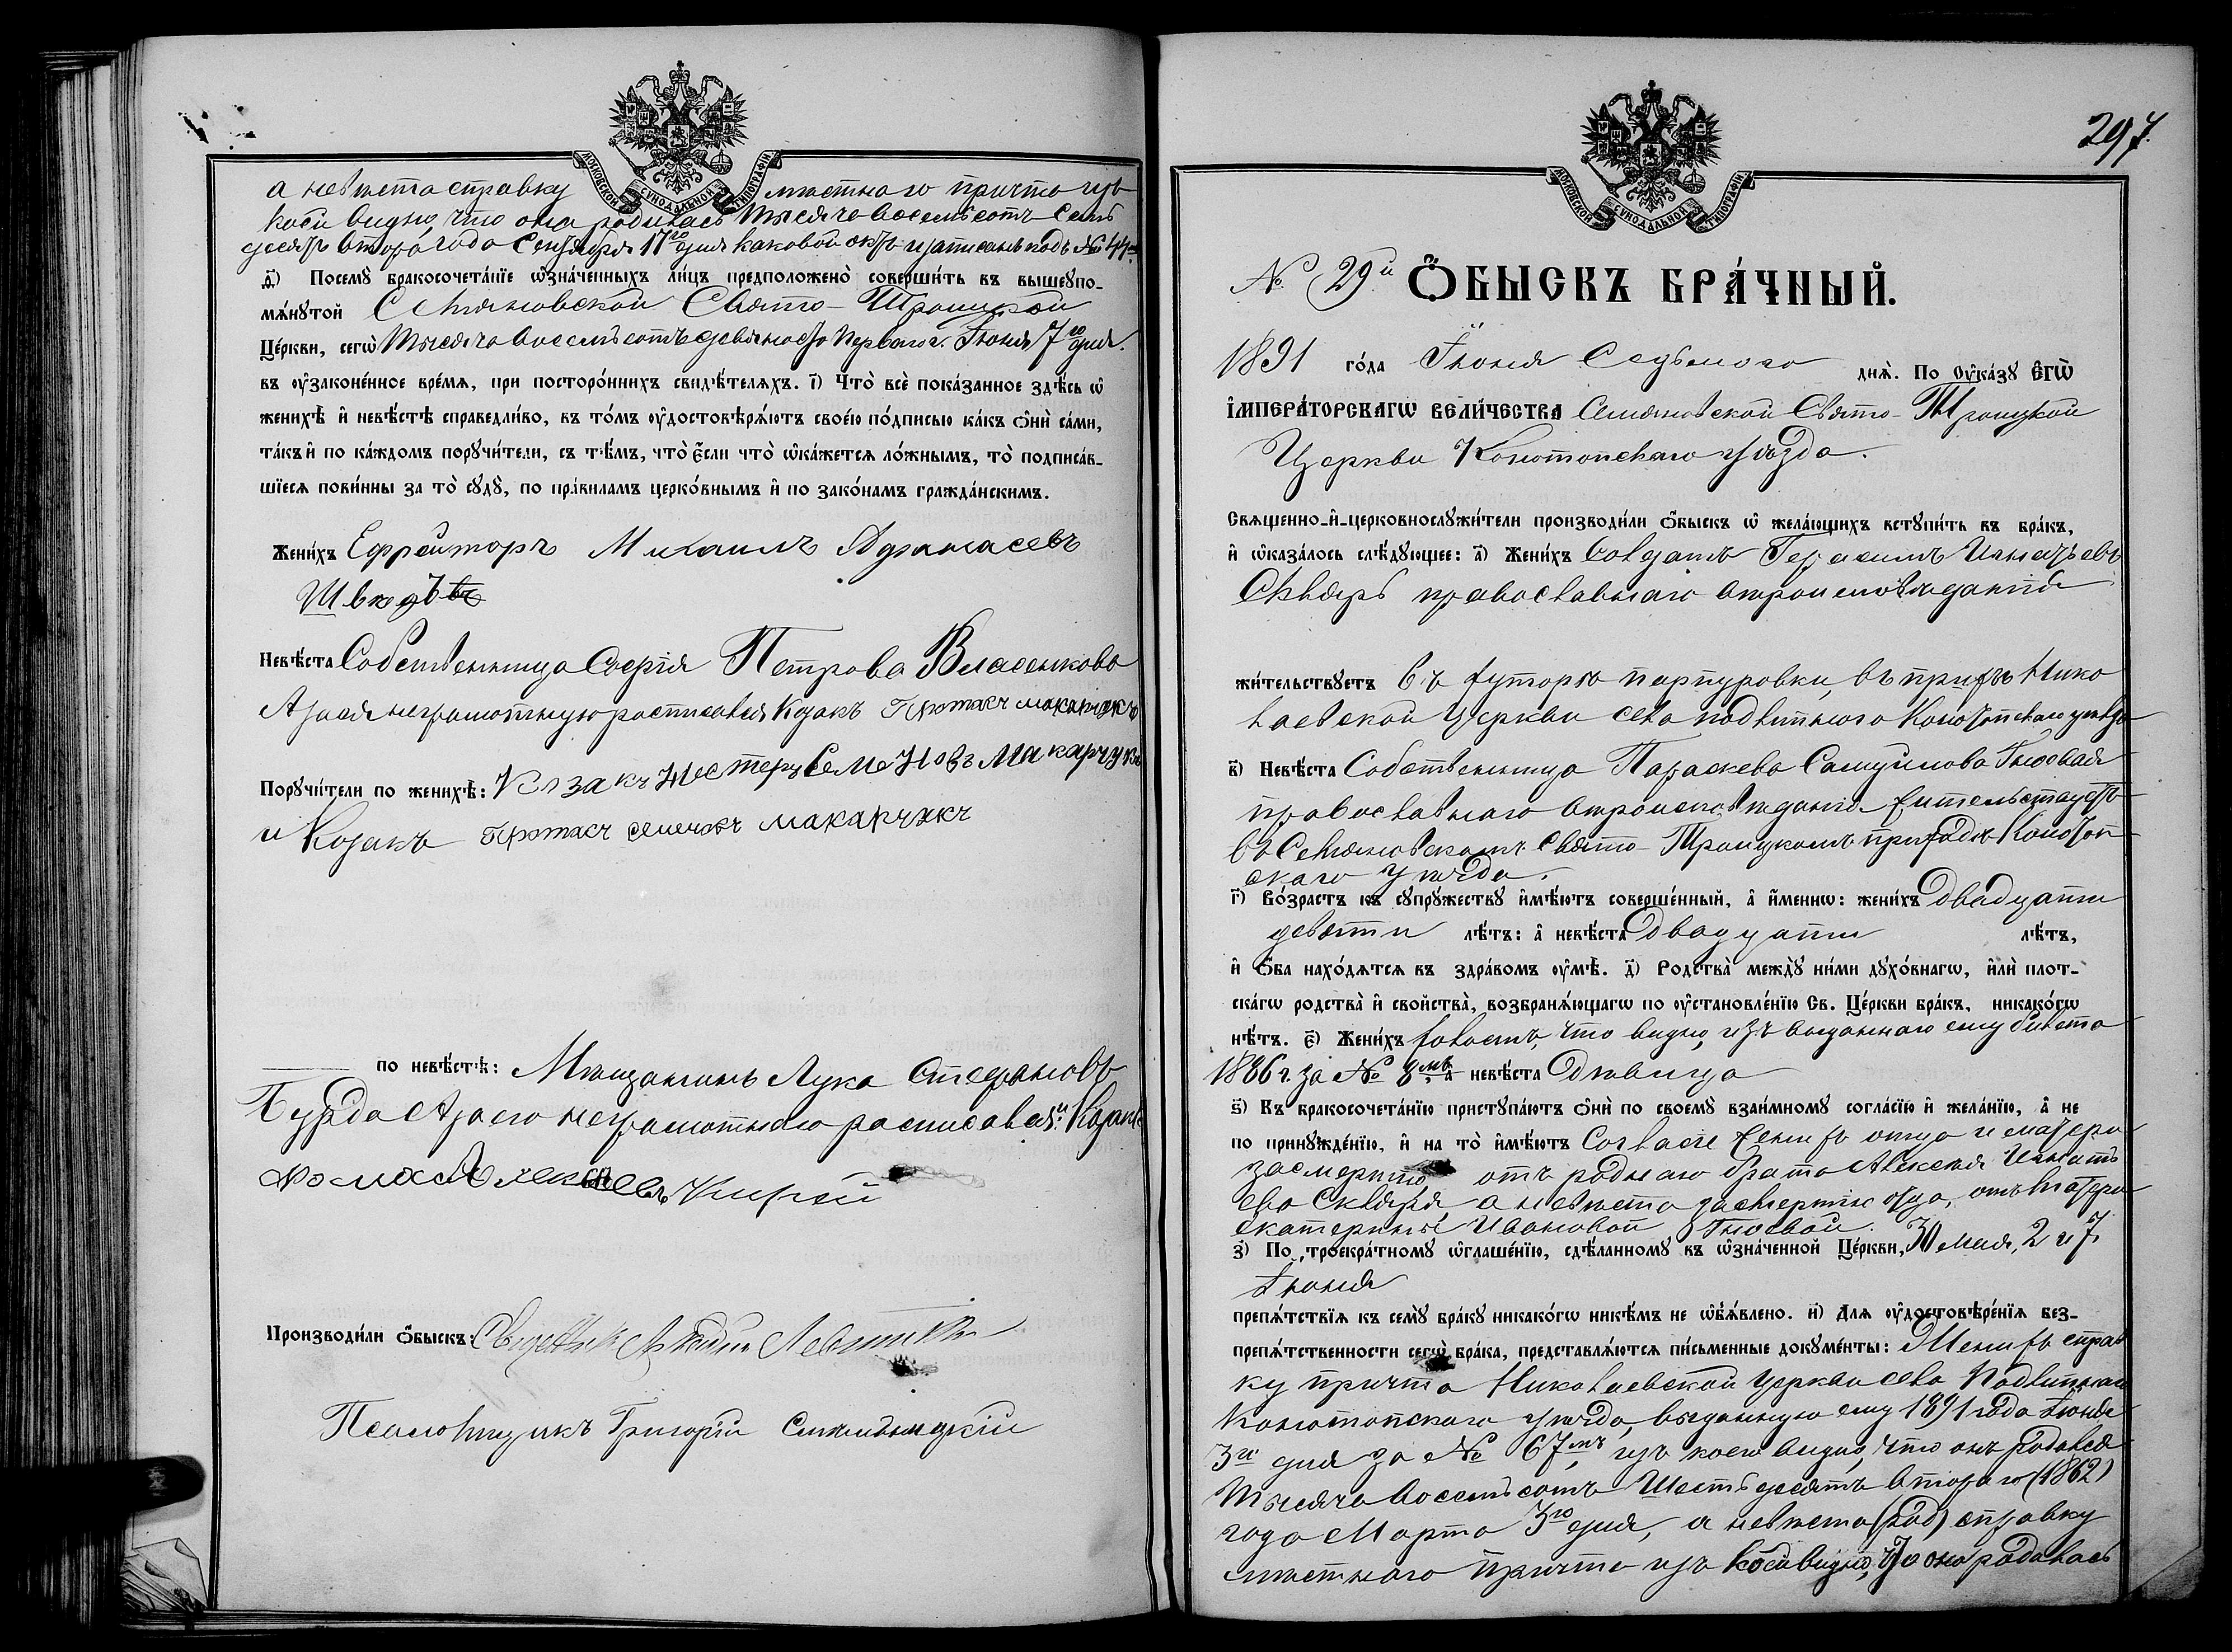 МОСКОВСКОЙ СѴНОДАЛЬНОЙ ТИПОГРАФІИ
а невѣста справку мѣстнаго причта изъ
коей видно, что она родилась тысяча восемьсотъ семь
десятъ втора года Сентября 17го дня каковой актъ записанъ подъ № 44
д҃) Посемꙋ̀ бракосочета́нїе ѡ҆зна́ченныхъ ли́цъ предположено̀ соверши́ть въ вышеꙋпо-
мѧ́нꙋтой Семяновской Свято-Троицкой
Це́ркви, сегѡ̀ тысяча восемьсотъ девяносто перваго г. Іюня 7го дня.
въ ᲂу҆зако́ненное вре́мѧ, при посторо́ннихъ свидѣ́телѧхъ. і҃) Что̀ всѐ пока́занное здѣ́сь ѡ҆
женихѣ̀ и҆ невѣ́стѣ справедли́во, въ то́мъ ᲂу҆достовѣрѧ́ютъ свое́ю по́дписью ка́къ ѻ҆нѝ са́ми,
та́къ и҆ по ка́ждомъ порꙋчи́тели, съ тѣ́мъ, что̀ є҆́сли что̀ ѡ҆ка́жетсѧ ло́жнымъ, то̀ подписа́в-
шїесѧ пови́нны за то̀ сꙋдꙋ̀, по пра́виламъ церко́внымъ и҆ по зако́намъ гражда́нскимъ.
Жени́хъ Ефрейторъ Михаилъ Афанасевъ
Шведъ
Невѣ́ста Собственница Софія Петрова Власенкова
А за нея неграмотную росписался Козакъ Протасъ Макарчукъ
Порꙋчи́тели по женихѣ̀: Козакъ Нестеръ Семеновъ Макарчукъ
и Козакъ Протасъ семеновъ макарчукъ
по невѣ́стѣ: Мѣщанинъ Лука Стефановъ
Бурда А за его неграмотнаго росписався: Козакъ
Фома Алексеевъ Кирей
Производи́ли ѻ҆́быскъ: Священникъ Левитскій
Псаломщикъ Григорій
297.
МОСКОВСКОЙ СѴНОДАЛЬНОЙ ТИПОГРАФІИ
№ 29й Ѻ҆́БЫСКЪ БРА́ЧНЫЙ.
1891 го́да Іюня Седьмого днѧ̀. По ᲂу҆ка́зꙋ Є҆ГѠ̀
И҆МПЕРА́ТОРСКАГѠ ВЕЛИ́ЧЕСТВА Семяновской Свято-Троицкой
Церкви Конотопскаго уѣзда.
Свѧщенно-и҆-церковнослꙋжи́тели производи́ли ѻ҆́быскъ ѡ҆ жела́ющихъ встꙋпи́ть въ бра́къ,
и҆ ѡ҆каза́лось слѣ́дꙋющее: а҃) Жени́хъ Солдатъ Герасимъ Игнатьевъ
Скляръ православнаго вѣроисповѣданія
жи́тельствꙋетъ въ хуторѣ парпуровки, въ прихъ Нико
лаевской Церкви села подлитнаго Конотопскаго уѣзда
в҃) Невѣ́ста Собственница Параскева Самуилова Гнѣвая
православнаго вѣроисповѣданія жительствуетъ
въ Семяновскомъ Свято-Троицкомъ приходѣ Конотоп
скаго уѣзда.
г҃) Во́зрастъ къ сꙋпрꙋ́жествꙋ и҆мѣ́ютъ соверше́нный, а҆ и҆́меннѡ: жени́хъ двадцати
девяти лѣ́тъ: а҆ невѣ́ста двадцати лѣ́тъ,
и҆ ѻ҆́ба нахо́дѧтсѧ въ здра́вомъ ᲂу҆мѣ̀. д҃) Родства̀ междꙋ̀ ни́ми дꙋхо́внагѡ, и҆лѝ плот-
ска́гѡ родства̀ и҆ свойства̀, возбранѧ́ющагѡ по ᲂу҆становле́нїю Св. Це́ркви бра́къ, никако́гѡ
нѣ́тъ. є҃) Жени́хъ холостъ, что видно, изъ выданнаго ему билета
1886 г. за № 8мъ, а҆ невѣ́ста Дѣвица
ѕ҃) Къ бракосочета́нїю пристꙋпа́ютъ ѻ҆нѝ по своемꙋ̀ взаи́мномꙋ согла́сїю и҆ жела́нїю, а҆ не
по принꙋжде́нїю, и҆ на то̀ и҆мѣ́ютъ Согласіе Женихъ отца и матери
засмертію отъ роднаго брата Алексея Игнать
ева Скляра, а невѣста засмертію отца, отъ матери
екатерины Ивановой Гнѣвой.
з҃) По троекра́тномꙋ ѡ҆глаше́нїю, сдѣ́ланномꙋ въ ѡ҆зна́ченной Це́ркви, 30 мая, 2 и 7
Іюня
препѧ́тствїѧ къ семꙋ̀ бра́кꙋ никако́гѡ никѣ́мъ не ѡ҆б̾ѧ́влено. и҃) Длѧ ᲂу҆достовѣре́нїѧ без-
препѧ́тственности сегѡ̀ бра́ка, представлѧ́ютсѧ пи́сьменные докꙋме́нты: Женихъ справ
ку причта Николаевской Церкви села Подлитнаго
Конотопскаго уѣзда, выданную ему 1891 года Іюня
3го дня за № 67мъ, изъ коей видно, что онъ родился
тысяча восемьсотъ шестьдесятъ второго (1862)
года Марта 3го дня, а невѣста справку
мѣстнаго причта изъ коей видно, что она родилась